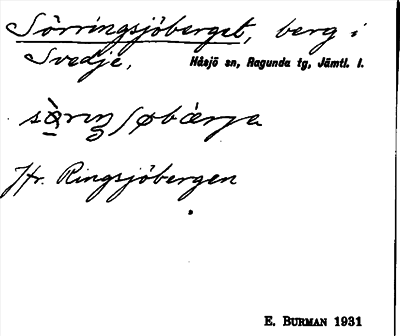 Sörringsjöberget, berg i
Svedje, Håsjö sn, Ragunda tg, Jämtl. l.
Jfr. Ringsjöbergen
E. BURMAN 1931